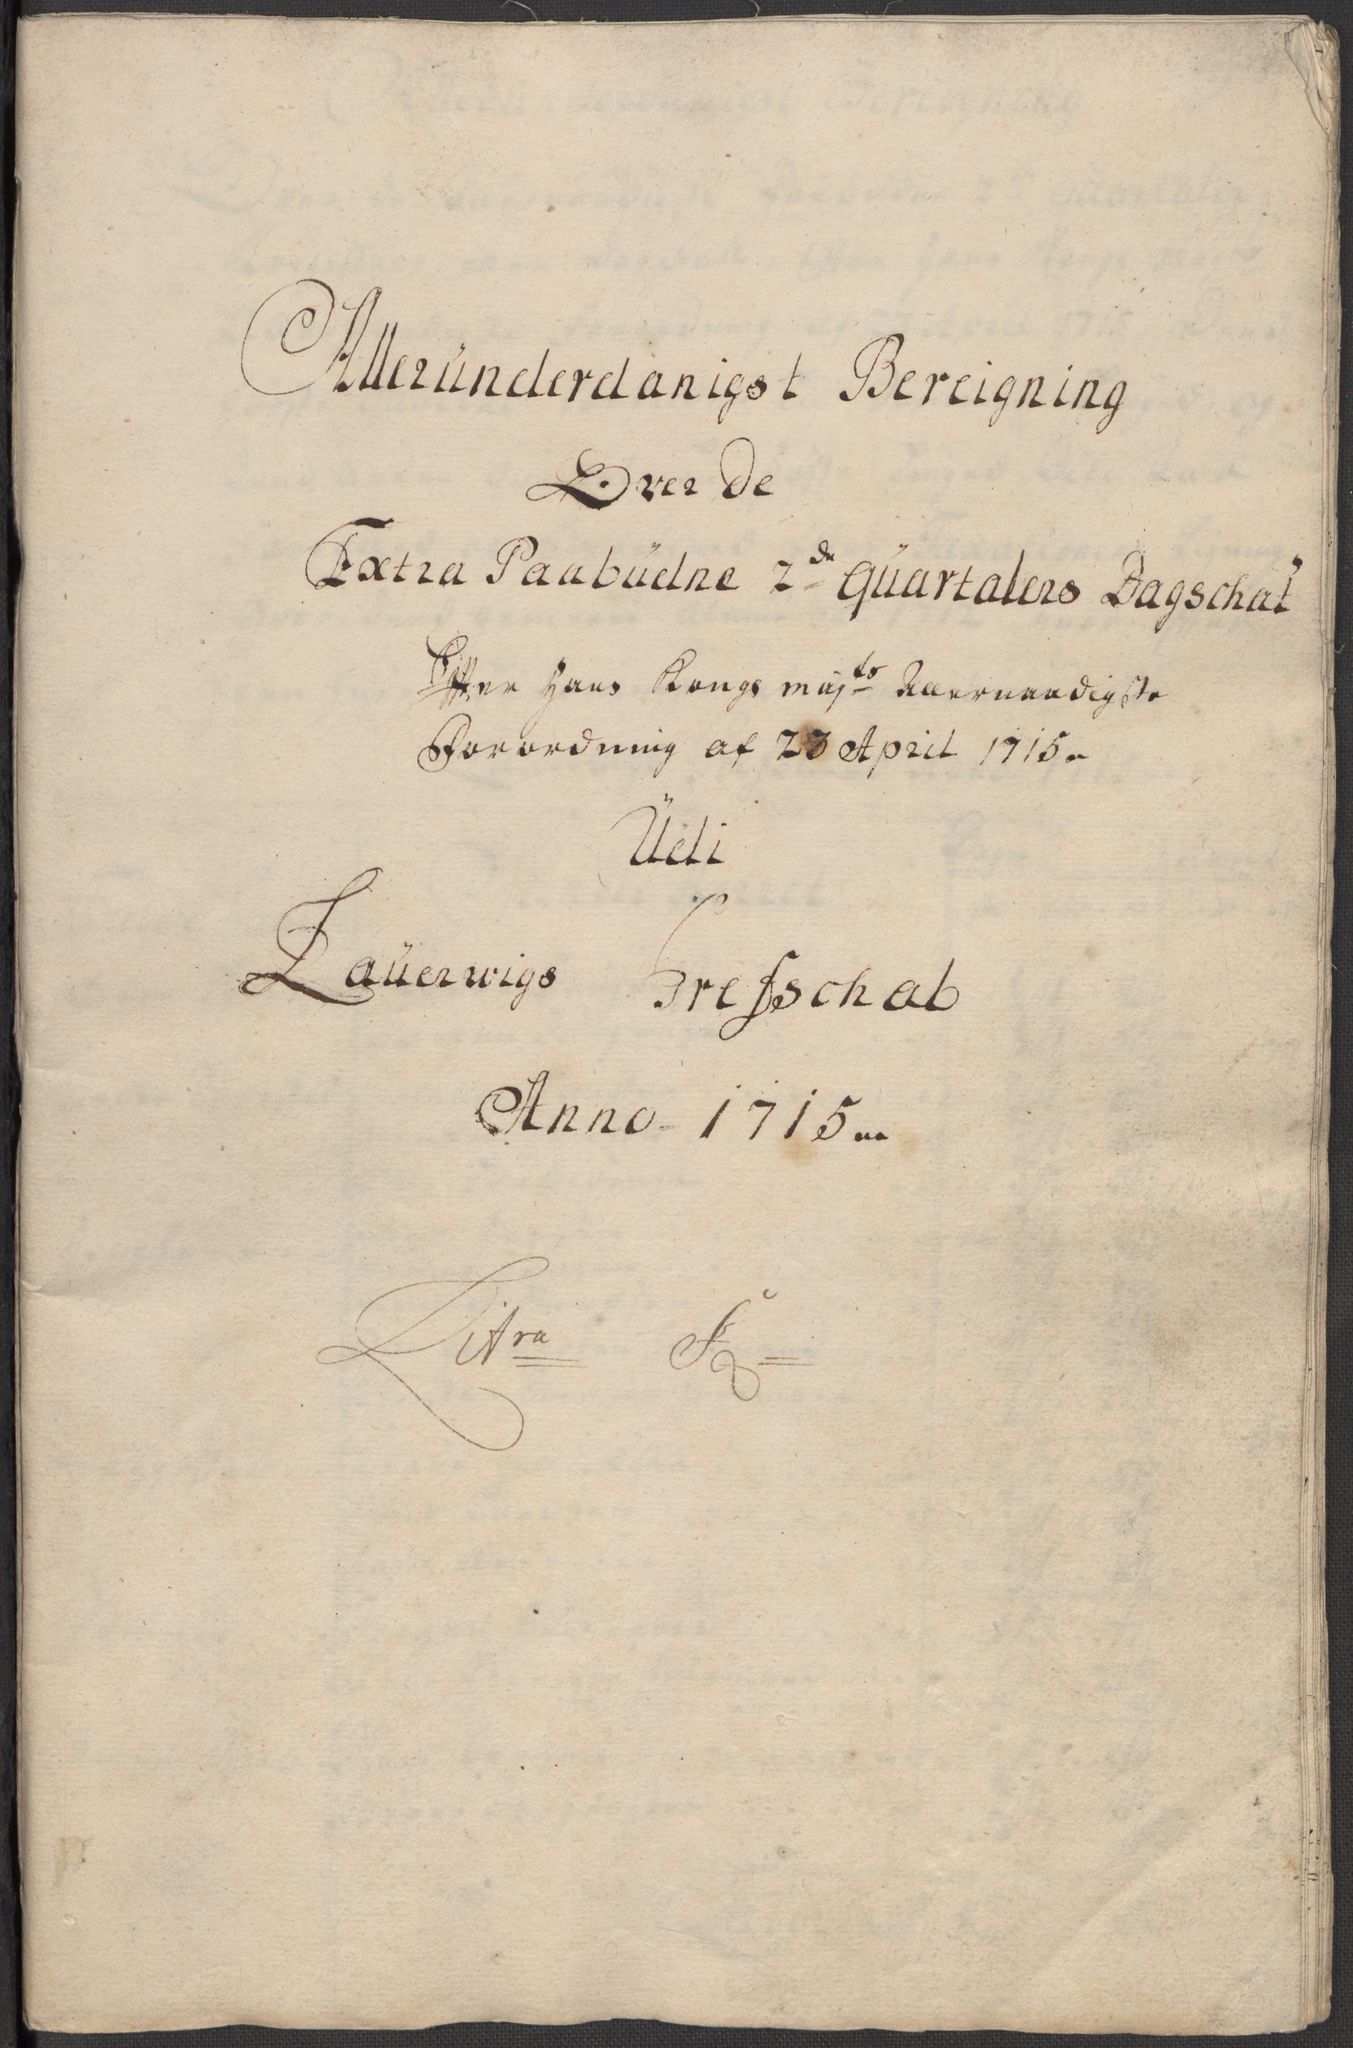 Alleründerdanigst Bereigning
Over de
Extra Paabüdne 2de Quartalers Dagschat
Efter Hans Kongs mayts Allernaadigste
Forordning af 23 April 1715
Üdi
Laüerwigs Grefschab
Anno 1715
Litra